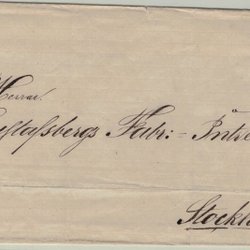 Herrar
Gustafsbergs Fabr:-Intre
Stockh